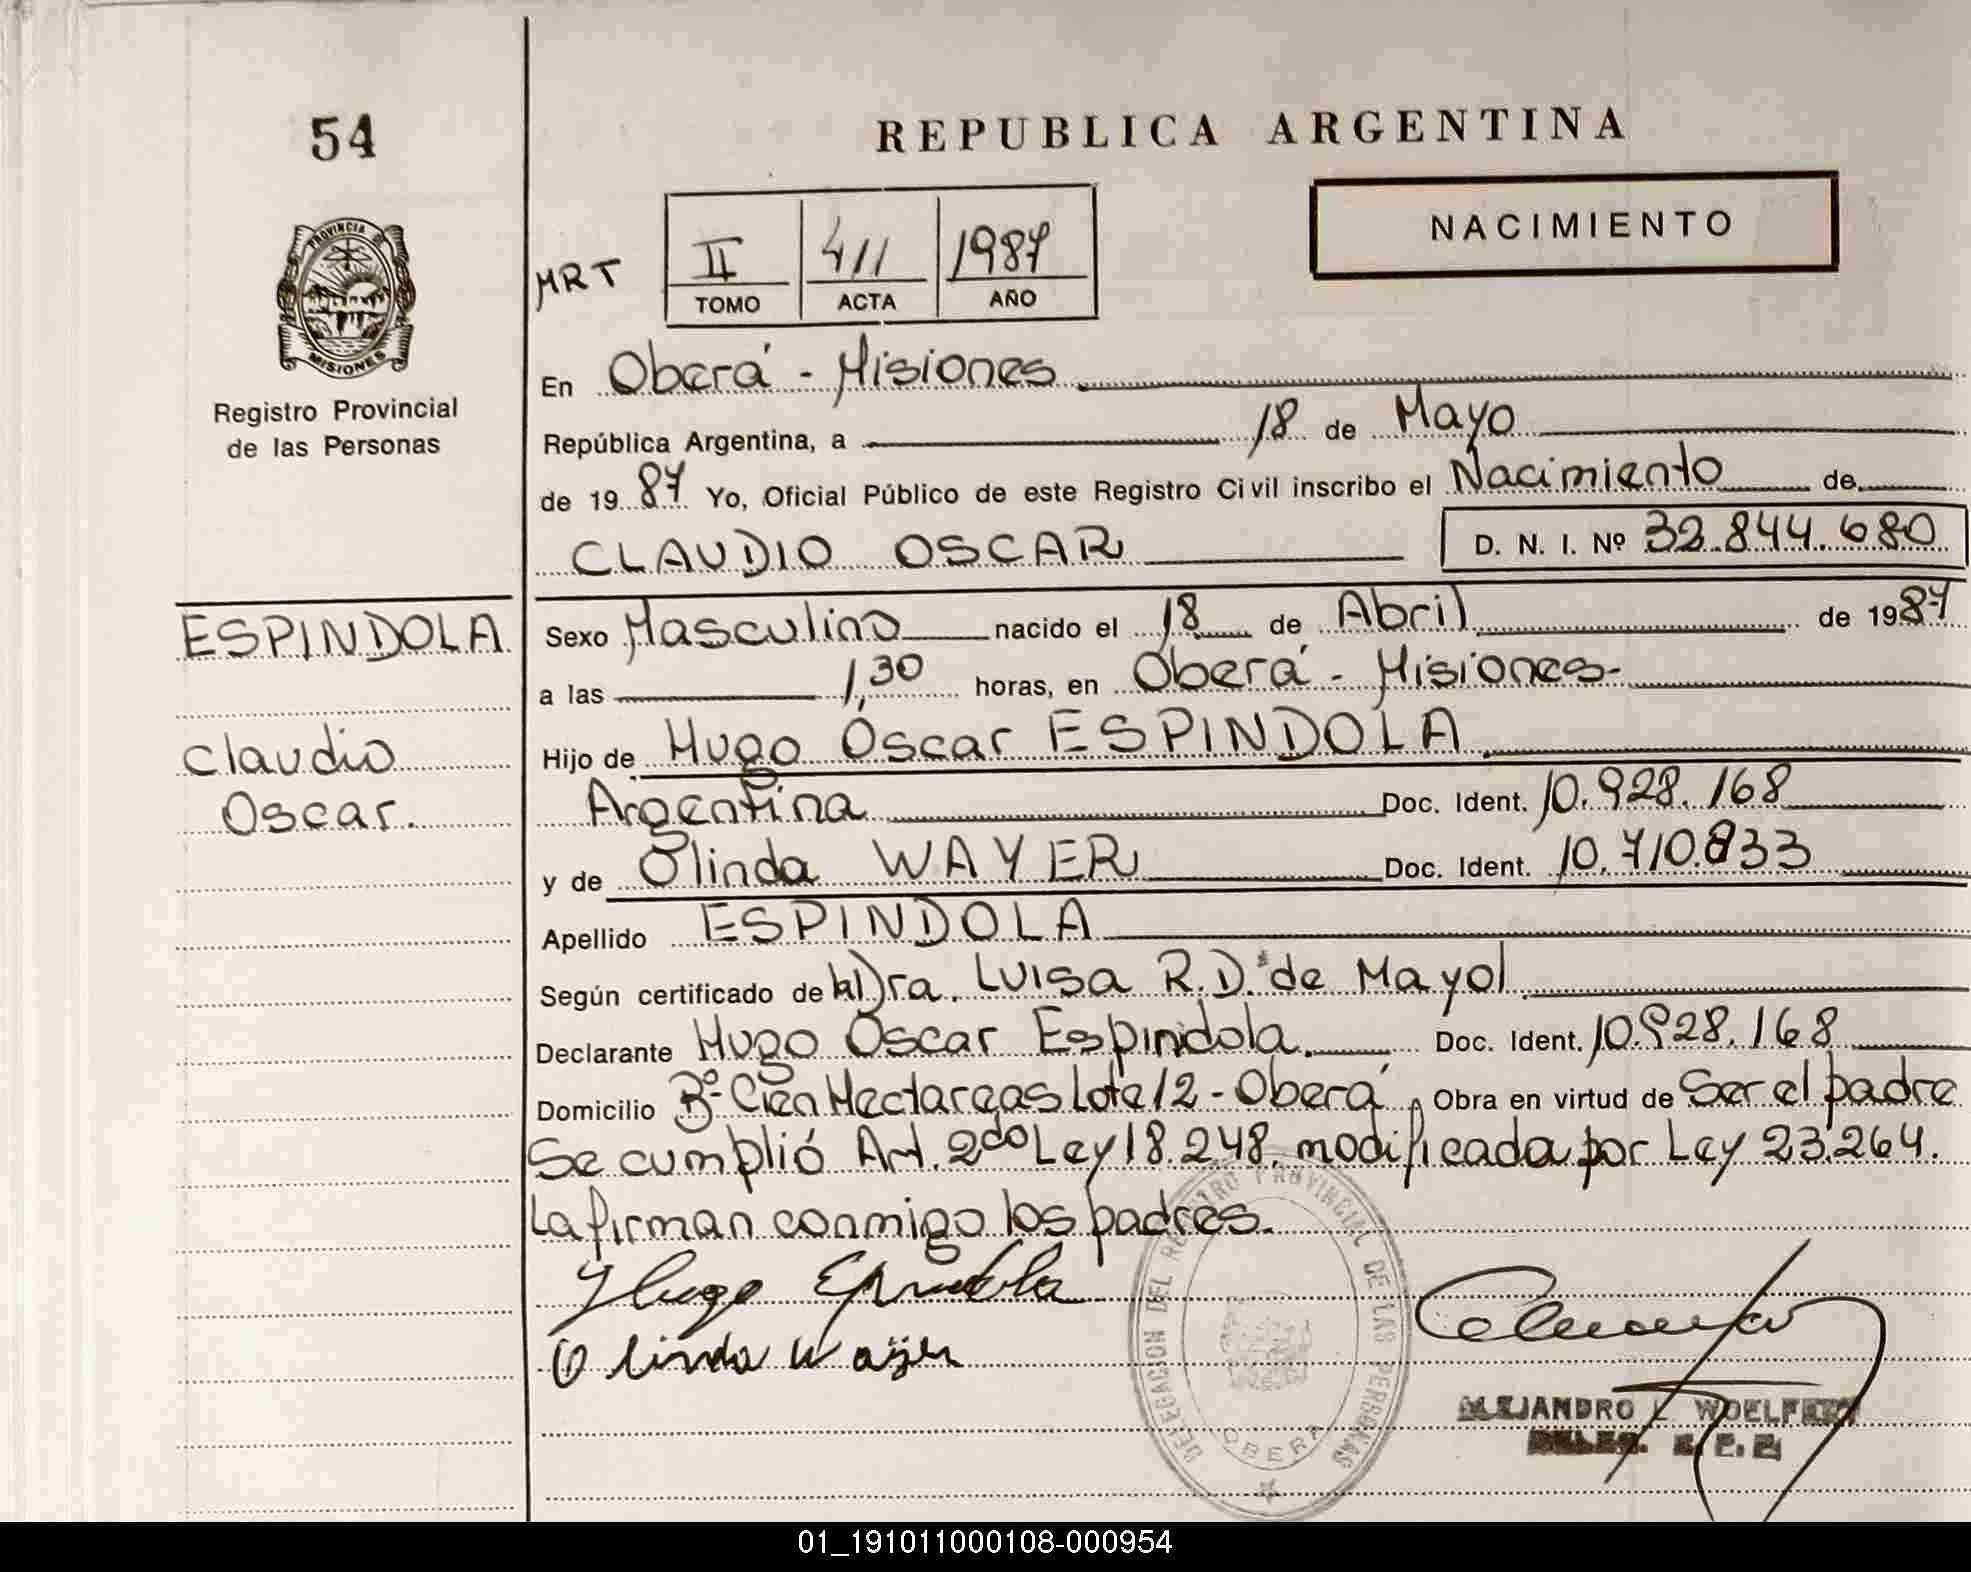 54
REPUBLICA ARGENTINA
NACIMIENTO
MRT
II 411 1987
TOMO ACTA AÑO
PROVINCIA DE
MISIONES
Registro Provincial
de las Personas
En Oberá - Misiones
República Argentina, a 18 de Mayo
de 1987 Yo, Oficial Público de este Registro Civil inscribo el Nacimiento de
CLAUDIO OSCAR D. N. I. Nº 32.844.680
ESPINDOLA
Claudio
Oscar.
Sexo Masculino nacido el 18 de Abril de 1987
a las 1,30 horas, en Oberá - Misiones-
Hijo de Hugo Oscar ESPINDOLA
Argentina Doc. Ident. 10.928.168
y de Olinda WAYER Doc. Ident. 10.710.833
Apellido ESPINDOLA
Según certificado de la Dra. Luisa R.D. de Mayol
Declarante Hugo Oscar Espindola. Doc. Ident. 10.928.168
Domicilio Bº- Cien Hectareas Lote 12 - Oberá Obra en virtud de Ser el padre
Se cumplió Art. 2do Ley 18.248, modificada por Ley 23.264.
La firman conmigo los padres.
Hugo Espindola
Olinda Wayer
DELEGACION DEL REGISTRO PROVINCIAL DE LAS PERSONAS
OBERA
ALEJANDRO
01_191011000108-000954